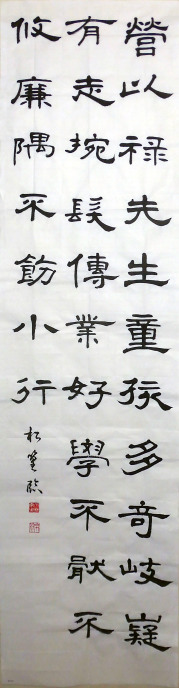 營以祿先生童孩多奇岐嶷
有志捥髮傳業好學不猒不
攸廉隅不飭小行
松 臨